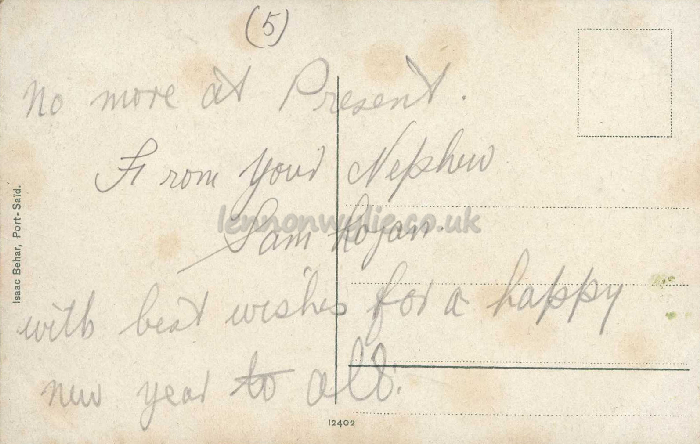 (5)
No more at Present.
From your Nephew
Sam Logan.
with best wishes for a happy
new year to all.
Isaac Behar, Port-Saïd.
lennonwylie.co.uk
12402